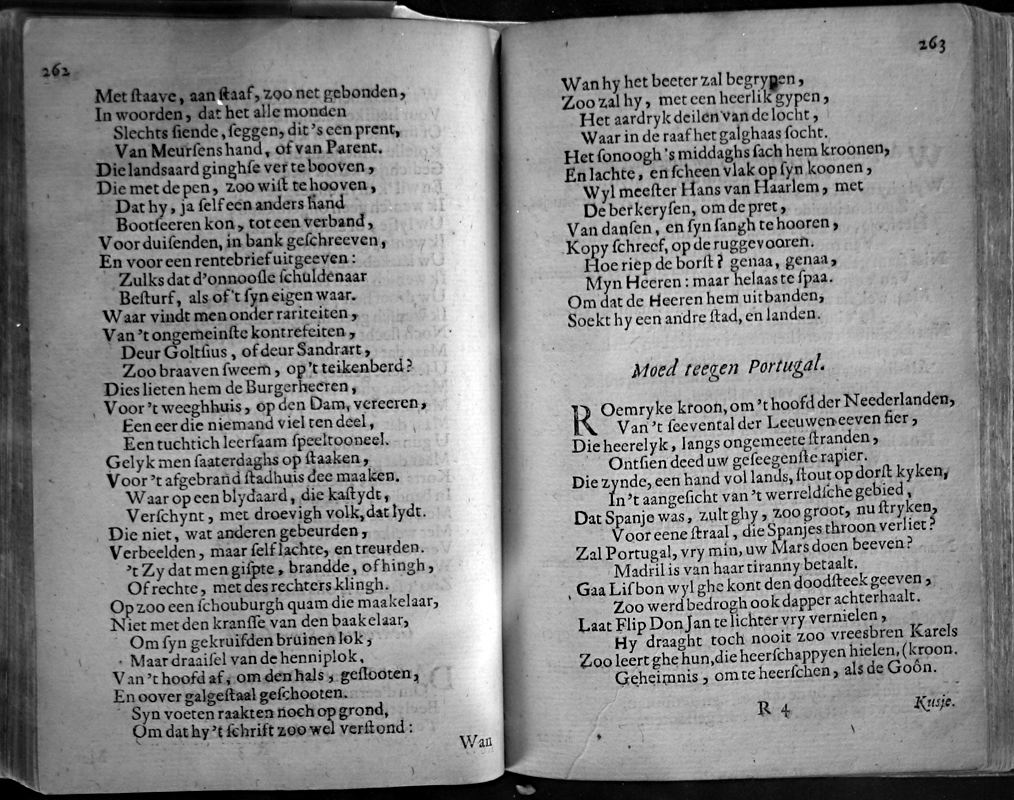 262
Met ſtaave, aan ſtaaf, zoo net gebonden,
In woorden, dat het alle monden
Slechts ſiende, ſeggen, dit 's een prent,
Van Meurſens hand, of van Parent.
Die landsaard ginghſe ver te booven,
Die met de pen, zoo wiſt te hooven,
Dat hy, ja ſelf een anders hand
Bootſeeren kon, tot een verband,
Voor duiſenden, in bank geſchreeven,
En voor een rentebrief uitgeeven:
Zulks dat d'onnooſle ſchuldenaar
Beſturf, als of 't ſyn eigen waar.
Waar vindt men onder rariteiten,
Van 't ongemeinſte kontrefeiten,
Deur Goltſius, of deur Sandrart,
Zoo braaven ſweem, op 't teikenberd?
Dies lieten hem de Burgerheeren,
Voor 't weeghhuis, op den Dam, vereeren,
Een eer die niemand viel ten deel,
Een tuchtich leerſaam ſpeeltooneel.
Gelyk men ſaaterdaghs op ſtaaken,
Voor 't afgebrand ſtadhuis dee maaken.
Waar op een blydaard, die kaſtydt,
Verſchynt, met droevigh volk, dat lydt.
Die niet, wat anderen gebeurden,
Verbeelden, maar ſelf lachte, en treurden.
't Zy dat men giſpte, brandde, of hingh,
Of rechte, met des rechters klingh.
Op zoo een ſchouburgh quam die maakelaar,
Niet met den kranſſe van den baakelaar,
Om ſyn gekruifden bruinen lok,
Maar draaiſel van de henniplok,
Van 't hoofd af, om den hals, geſlooten,
En oover galgeſtaal geſchooten.
Syn voeten raakten noch op grond,
Om dat hy 't ſchrift zoo wel verſtond:
Wan
263
Wan hy het beeter zal begrypen,
Zoo zal hy, met een heerlik gypen,
Het aardryk deilen van de locht,
Waar in de raaf het galghaas ſocht.
Het ſonoogh 's middaghs ſach hem kroonen,
En lachte, en ſcheen vlak op ſyn koonen,
Wyl meeſter Hans van Haarlem, met
De berkeryſen, om de pret,
Van danſen, en ſyn ſangh te hooren,
Kopy ſchreef, op de ruggevooren.
Hoe riep de borſt? genaa, genaa,
Myn Heeren: maar helaas te ſpaa.
Om dat de Heeren hem uitbanden,
Soekt hy een andre ſtad, en landen.
Moed teegen Portugal.
ROemryke kroon, om 't hoofd der Neederlanden,
Van 't ſeevental der Leeuwen eeven fier,
Die heerelyk, langs ongemeete ſtranden,
Ontſien deed uw geſeegenſte rapier.
Die zynde, een hand vol lands, ſtout op dorſt kyken,
In 't aangeſicht van 't werreldſche gebied,
Dat Spanje was, zult ghy, zoo groot, nu ſtryken,
Voor eene ſtraal, die Spanjes throon verliet?
Zal Portugal, vry min, uw Mars doen beeven?
Madril is van haar tiranny betaalt.
Gaa Liſbon wyl ghe kont den doodſteek geeven,
Zoo werd bedrogh ook dapper achterhaalt.
Laat Flip Don Jan te lichter vry vernielen,
Hy draaght toch nooit zoo vreesbren Karels
Zoo leert ghe hun, die heerſchappyen hielen, (kroon.
Geheimnis, om te heerſchen, als de Goôn.
R 4
Kusje.